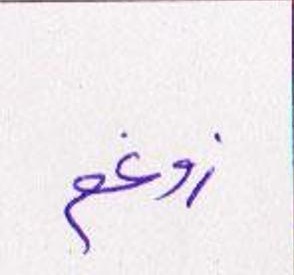 زوغم